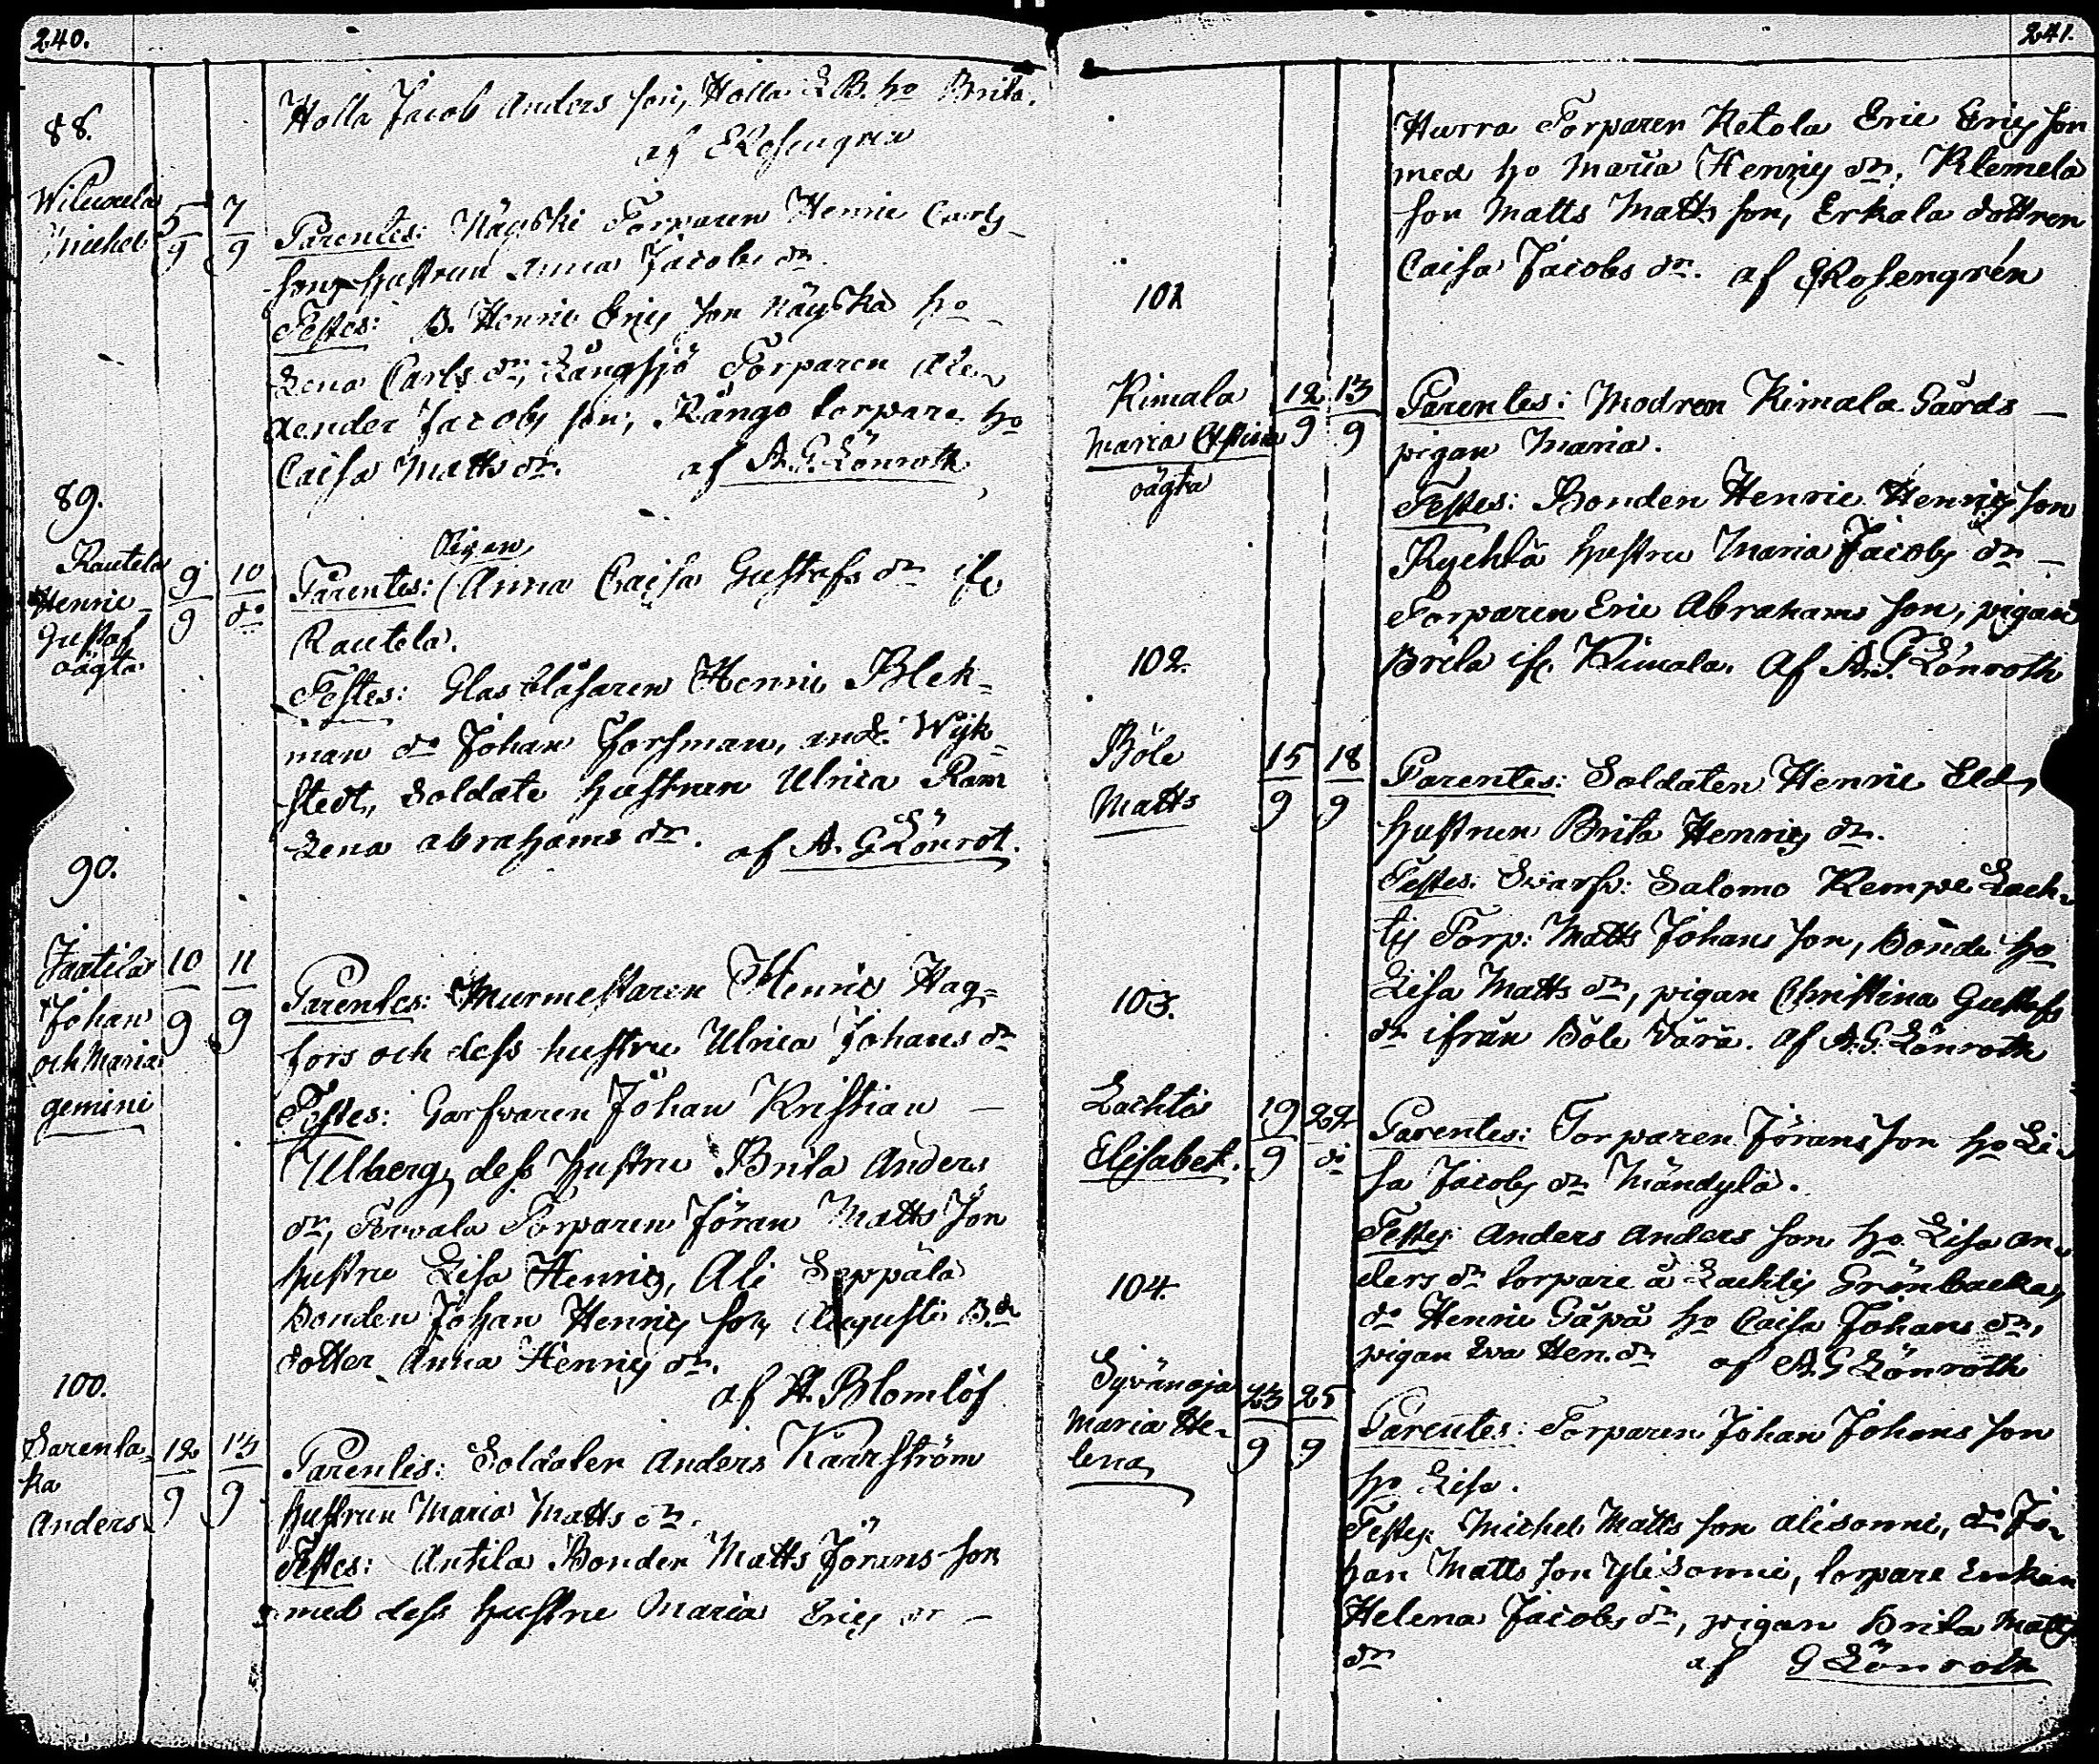 240.
Holla Jacob Anders son, Holla L B. ho Brita.
af ERosengren
88.
Michel
5/9 7/9
Parentes: Näyski Torparen Henric Carls
son, hustrun Anna Jacobs dr.
Testes: B. Henric Erics son Näyskä ho
Lena Carls dr, Långsjö Torparen Alex
aender Jacobs son, Rångo torpare ho
Caisa Matts dr. af A. G. Lönroth
89.
Rautela
Henric
Gustaf
oägta
9/9 10/do
Pigan
Parentes: Anna Caisa Gustafs dr ifr
Rautela.
Testes: Glasblåsaren Henric Blek=
man do Johan Forsman, and. Wijk=
stedt, Soldate hustrun Ulrica Ram
Lena Abrahams dr. af A. G Lönrot.
90.
Jaatila
Johan
och Maria
gemini
10/9 11/9
Parentes: Murmestaren Henric Hag=
fors och dess hustru Ulrica Johans dr
Testes: Garfvaren Johan Kristian
Ulberg, dess hustru Brita Anders
dr, Terwala Torparen Jöran Matts son
hustru Lisa Henrics, Ali Seppälä
Bonden Johan Henrics son, Augusti B.
dotter Anna Henrics dr.
af H. Blomlöf
100.
Sarenka
ka
Anders
12/9 13/9
Parentes: Soldaten Anders Kaarström
hustrun Maria Matts dr.
Testes: Antila Bonden Matts Jörans son
med dess hustru Maria Erics dr
241.
Hurra Torparen Ketola Eric Erics son
med ho Maria Henrics dr, Klemela
son Matts Matts son, Erkala dottren
Caisa Jacobs dr. af ERosengrén
101
Kimala
Maria Christina
oägta
12/9 13/9
Parentes: Modren Kimala Gårds
pigan Maria.
Testes: Bonden Henric Henrics son
Rychtä hustru Maria Jacobs dr
Torparen Eric Abrahams son, pigan
Brita ifr. Kimala. Af A. G Lönroth
102.
Böle
Matts
15/9 18/9
Parentes: Soldaten Henric Eld,
hustrun Brita Henrics dr.
Testes: Svarfv: Salomo Kempe Lach
tis Torp: Matts Johans son, Bonde ho
Lisa Matts dr, pigan Christina Gustafs
dr ifrån Böle Vörå. af A. G. Lönroth
103.
Lachtis
Elisabet.
19/9 22/do
Parentes: Torparen Jörans son ho Li
sa Jacobs dr Mändylä.
Testes: Anders Anders son ho Lisa An
ders dr torpare å Lachtis Grönbacka,
do Henric Gäpä ho Caisa Johans dr,
pigan Eva Hen. dr af A. G Lönroth
104.
Syvänoja
Maria He-
lena
23/9 25/9
Parentes: Torparen Johan Johans son
ho Lisa.
Testes: Michel Matts son Alisonni, do Jo
han Matts son Ylisonni, torpare Enkan
Helena Jacobs dr, pigan Brita Matts
dr af G Lönroth